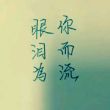 你而流
眼泪为